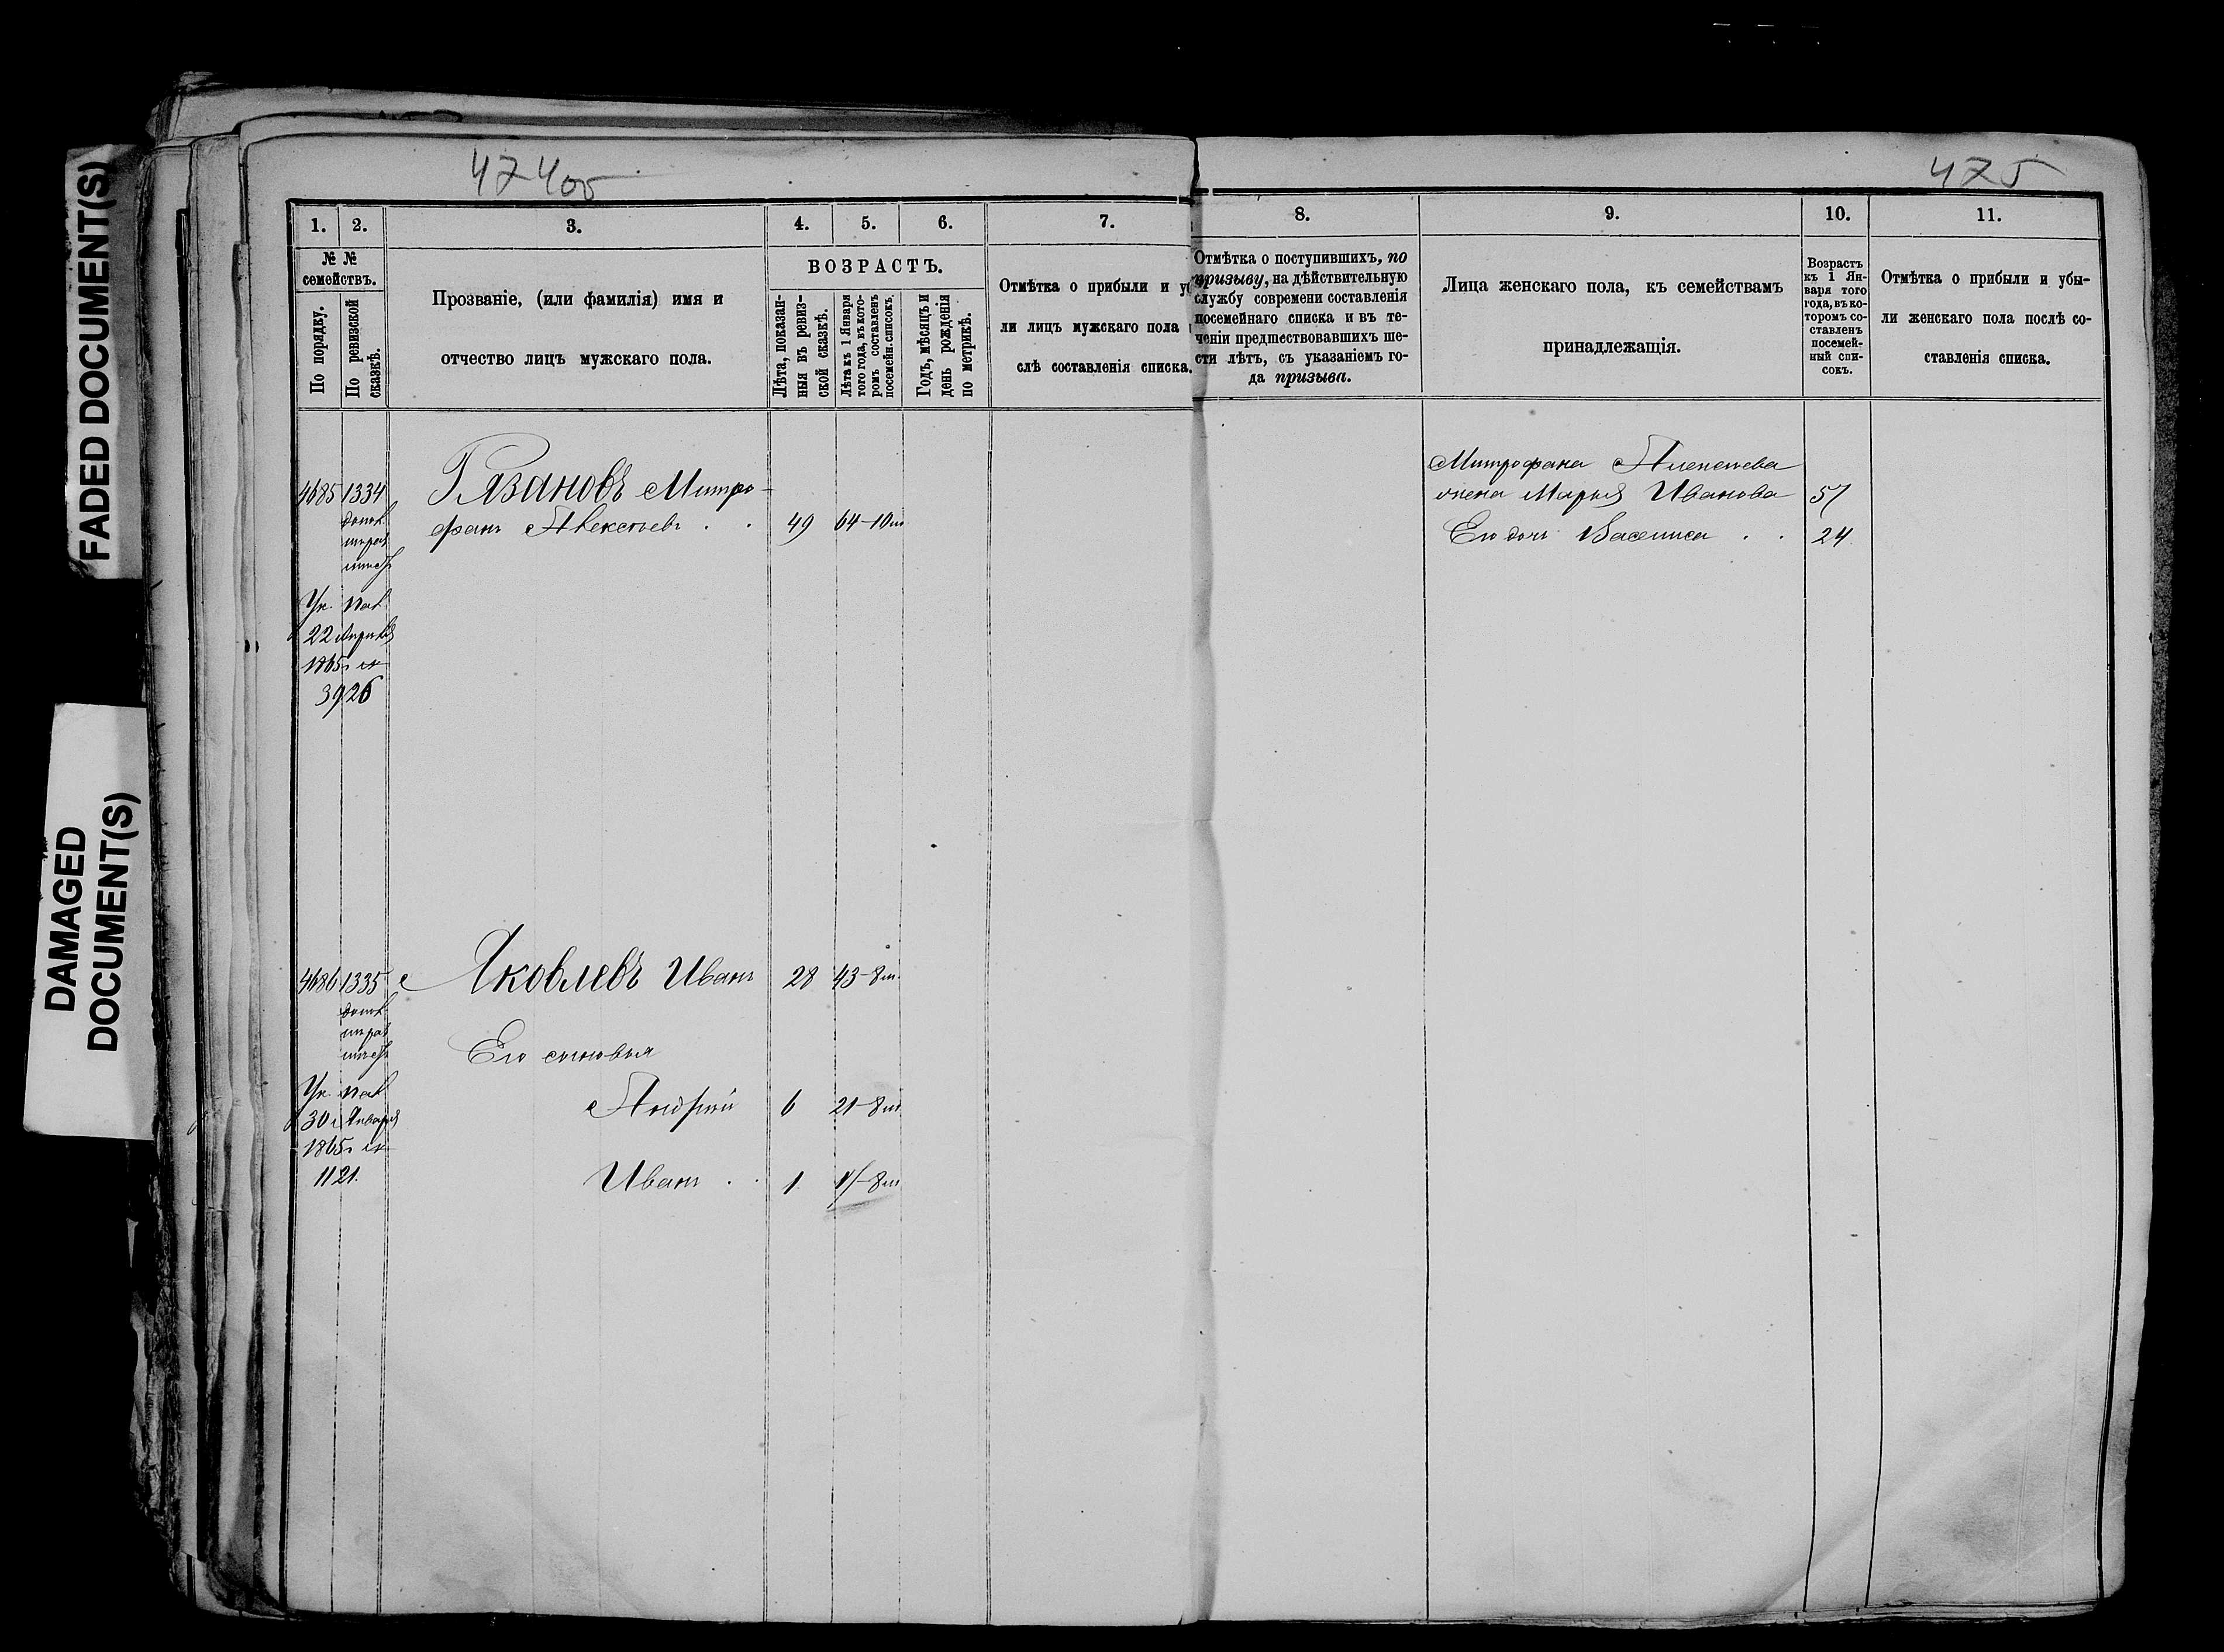 FADED DOCUMENT(S)
DAMAGED
DOCUMENT(S)
474об
475
1. 2. 3. 4. 5. 6. 7. 8. 9. 10. 11.
№ №
семействъ.
По порядку.
По ревизской
сказкѣ.
Прозваніе, (или фамилія) имя и
отчество лицъ мужскаго пола.
ВОЗРАСТЪ.
Лѣта, показан-
ныя въ ревиз-
ской сказкѣ.
Лѣта къ 1 Января
того года, въ кото-
ромъ составленъ
посемейн. списокъ.
Годъ, мѣсяцъ и
день рожденія
по метрикѣ.
Отмѣтка о прибыли и уб
ли лицъ мужскаго пола
слѣ составленія списка.
Отмѣтка о поступившихъ, по
призыву, на дѣйствительную
службу современи составленія
посемейнаго списка и въ те-
ченіи предшествовавшихъ ше-
сти лѣтъ, съ указаніемъ го-
да призыва.
Лица женскаго пола, къ семействамъ
принадлежащія.
Возрастъ
къ 1 Ян-
варя того
года, въ ко-
торомъ со-
ставленъ
посемей-
ный спи-
сокъ.
Отмѣтка о прибыли и убы-
ли женскаго пола послѣ со-
ставленія списка.
4685 1334 Рязановъ Митро-
фанъ Алексѣевъ . . 49 64-10м
Ук. пал
22 Апрѣля
1865г. №
3926
Митрофана Алексѣева
жена Марья Иванова 57
Его дочь Васелиса . . 24.
4686 1335 Яковлевъ Иванъ 28 43-8м.
Его сыновья
Ук. пал
Андрей 6 21-8м
30 Января
1865г. №
1121.
Иванъ . . 1.